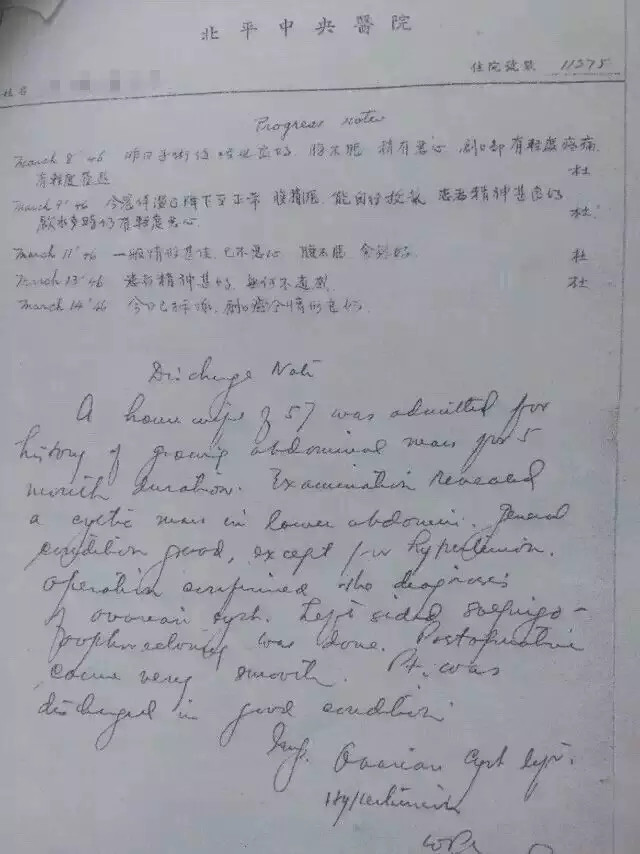 北平中央醫院
住院號數 11275
姓名
Progress notes
March 8 '46 昨日手術後 腹不脹 稍有惡心 刀口部有輕度疼痛
杜
March 9 '46 今晨体溫已降下至正常 腹稍脹 能自行 患者精神甚良好
飲水多時仍有輕度惡心
杜
March 11 '46 一般情形甚佳 已不惡心 腹不脹 食
杜
March 13 '46 患者精神甚好 無何不適
杜
March 14 '46 今日已拆線 情形良好
Discharge Note
A housewife of 57 was admitted for
history of growing abdominal mass for 5
month duration. Examination revealed
a cystic mass in lower abdomen. General
condition good, except for hypertension.
Operation confirmed the diagnosis
of ovarian cyst. Left sided salpingo-
oophorectomy was done. Postoperative
course very smooth. Pt. was
discharged in good condition.
Imp. Ovarian cyst left.
Hypertension